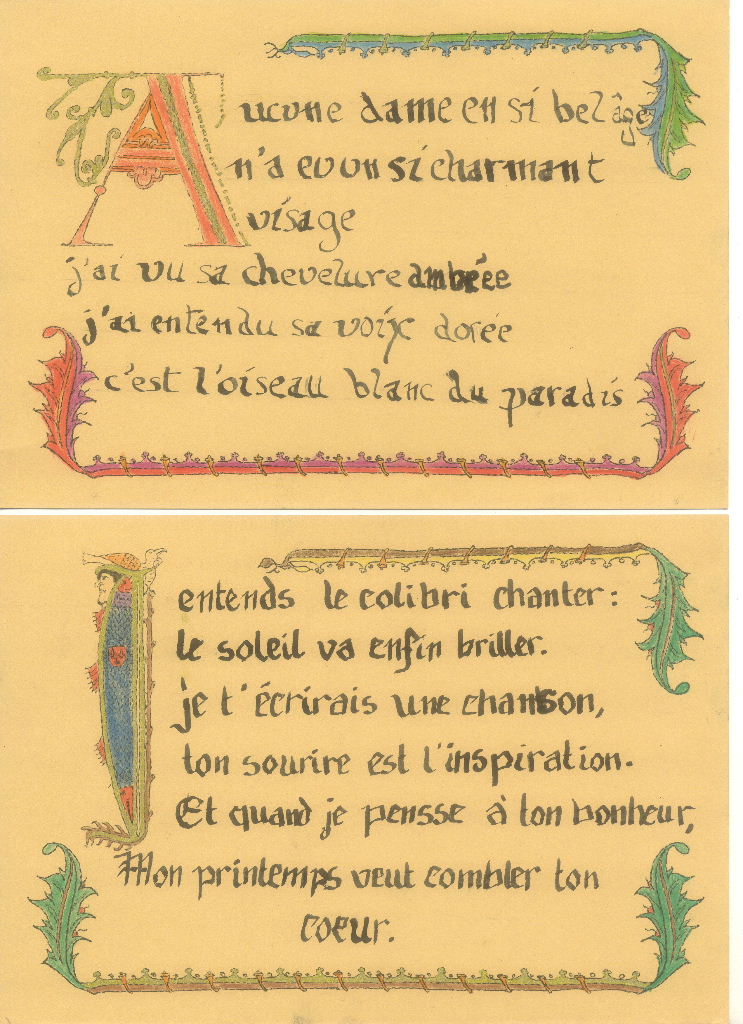 Aucune dame en si bel âge
n'a eu un si charmant
visage
j'ai vu sa chevelure ambrée
j'ai entendu sa voix dorée
c'est l'oiseau blanc du paradis
J entends le colibri chanter:
le soleil va enfin briller.
je t'écrirais une chanson,
ton sourire est l'inspiration.
Et quand je pensse à ton bonheur,
Mon printemps veut combler ton
coeur.